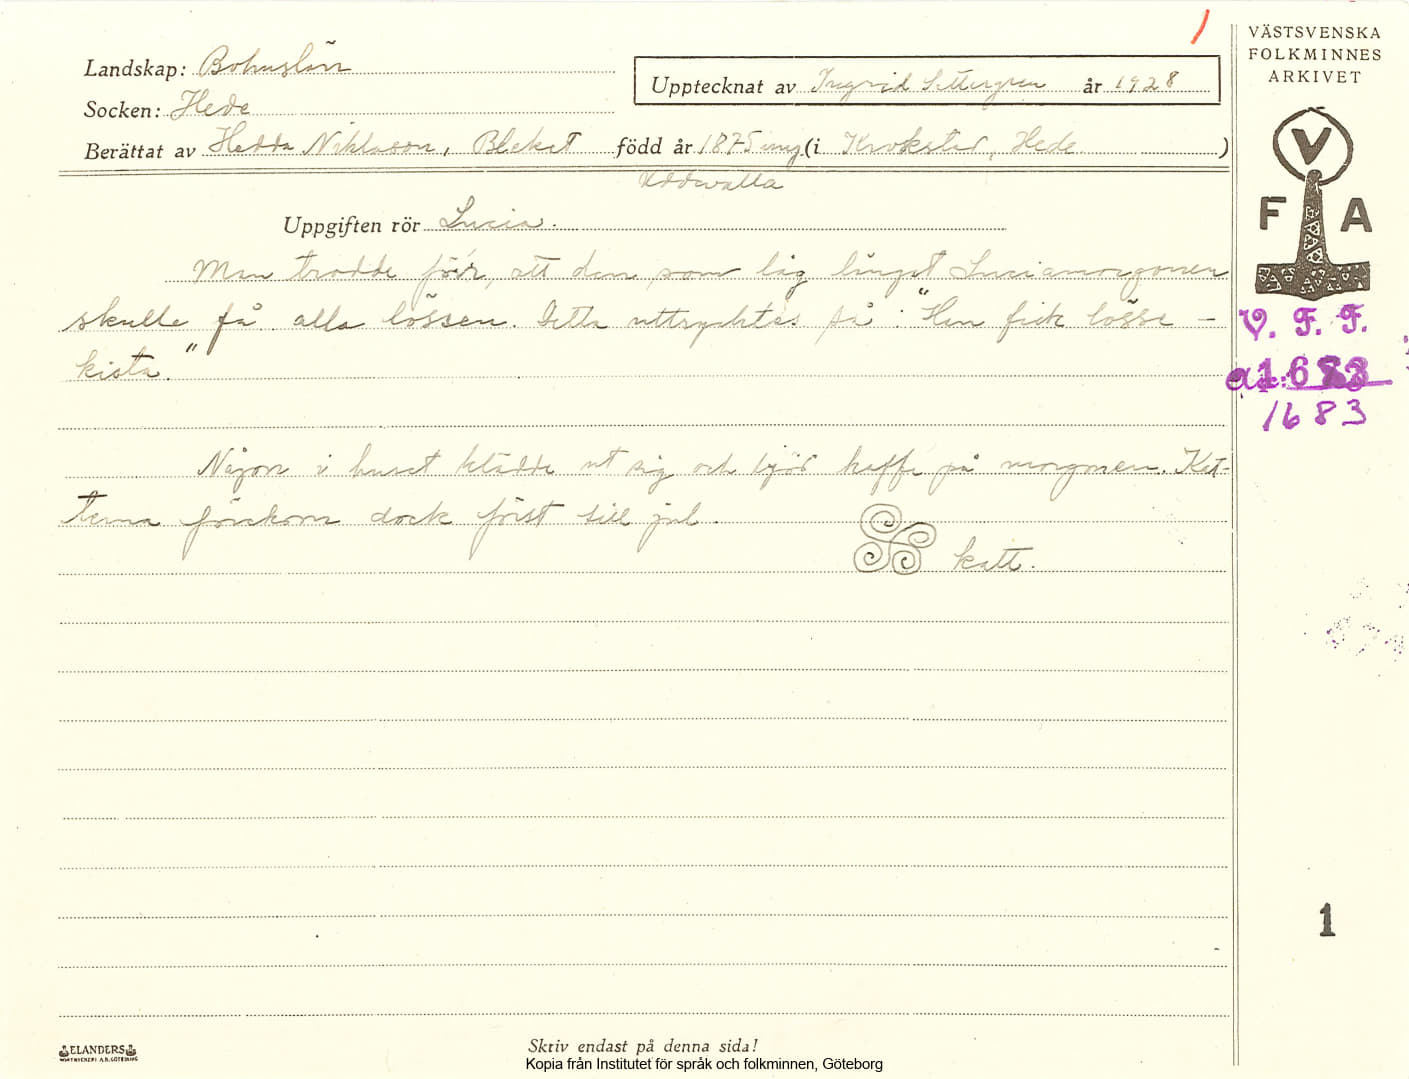 Landskap: Bohuslän
Upptecknat av Ingrid Settergren år 1928
Socken: Hede
Berättat av Hedda Niklasson, Bleket född år 1875 (i Krokstad, Hede)
Uddevalla
Uppgiften rör Lucia.
Man trodde förr, att den, som låg längst Luciamorgonen
skulle få alla lössen. Detta uttrycktes så: "Han fick lösse-
kista."
Någon i huset klädde ut sig och bjöd kaffe på morgonen. Kat-
terna förekom dock först till jul.
katt.
VÄSTSVENSKA
FOLKMINNES
ARKIVET
V
F A
V. F. F.
1683
1683
1
ELANDERS
Skriv endast på denna sida!
Kopia från Institutet för språk och folkminnen, Göteborg